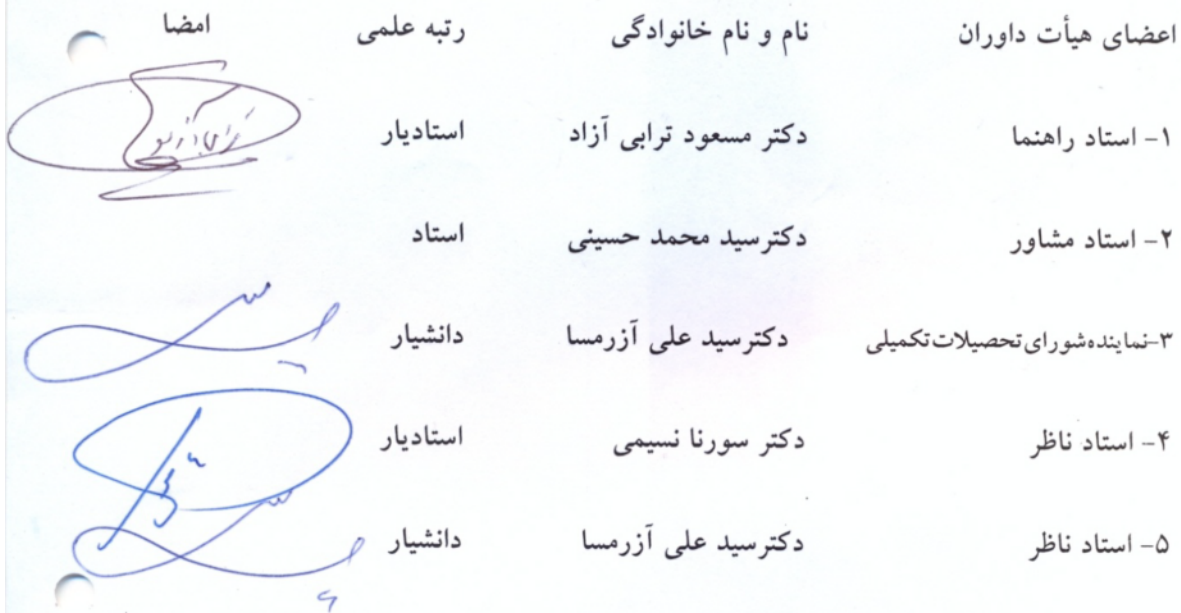 اعضای هیأت داوران نام و نام خانوادگی رتبه علمی امضا
۱- استاد راهنما دکتر مسعود ترابی آزاد استادیار
۲- استاد مشاور دکترسید محمد حسینی استاد
۳-نماینده‌شورای‌تحصیلات‌تکمیلی دکترسید علی آزرمسا دانشیار
۴- استاد ناظر دکتر سورنا نسیمی استادیار
۵- استاد ناظر دکترسید علی آزرمسا دانشیار